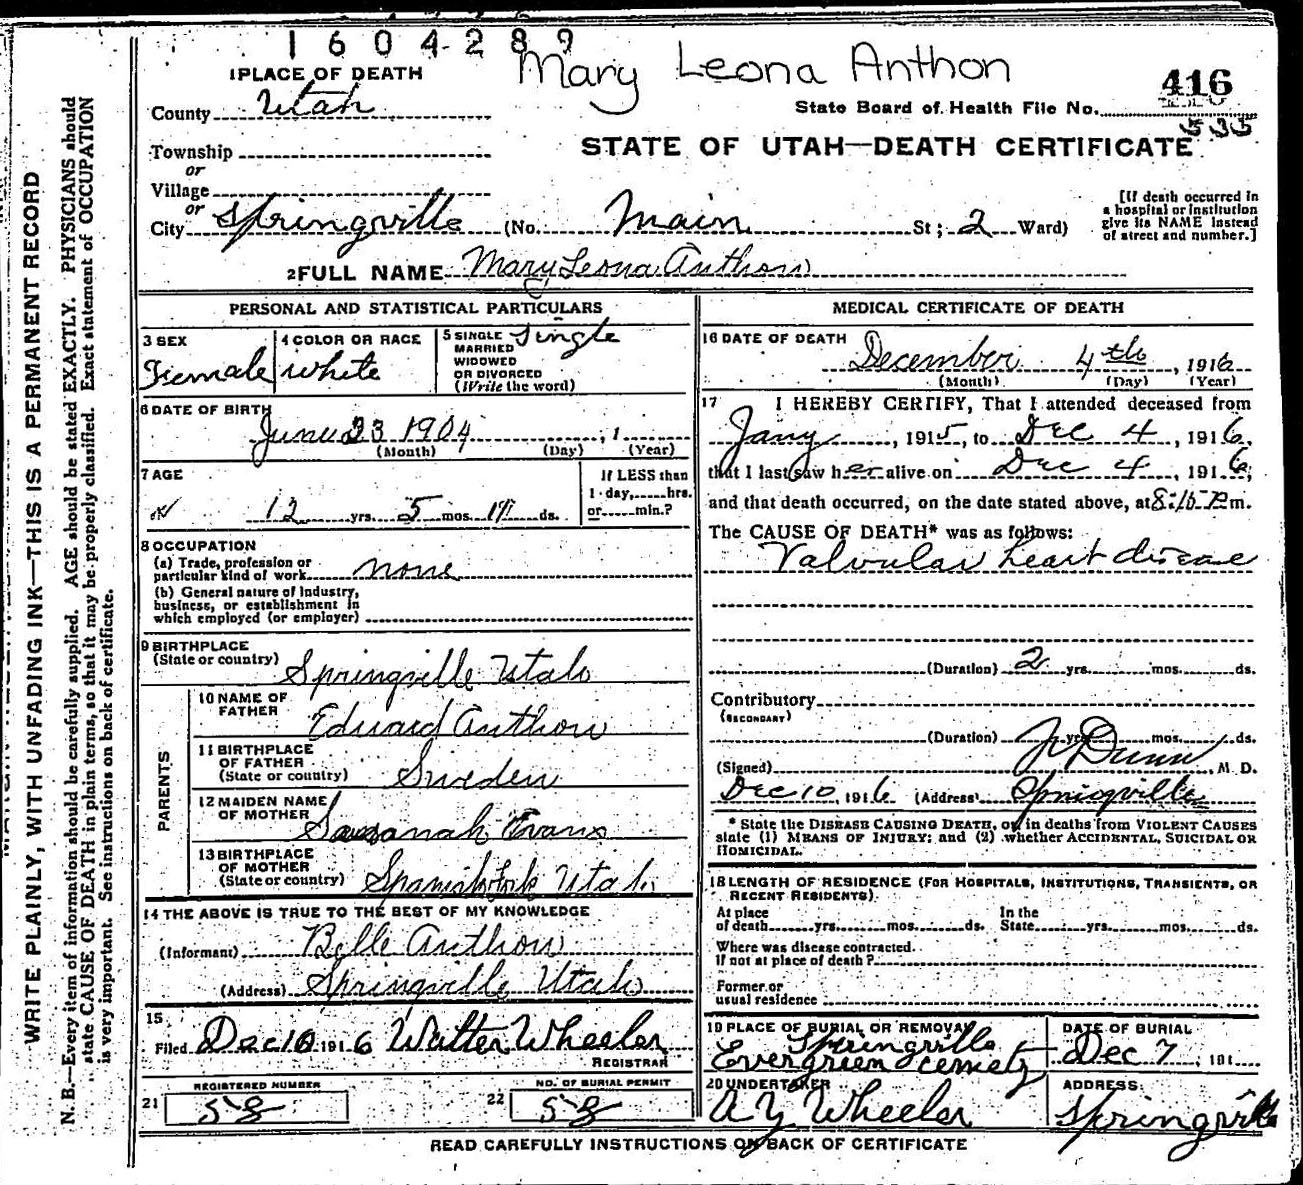 1604289
Mary Leona Anthon
1 PLACE OF DEATH
416
County Utah
State Board of Health File No.
535
Township
STATE OF UTAH—DEATH CERTIFICATE
or
Village
or
City Springville (No. Main St; 2 Ward)
[If death occurred in
a hospital or institution
give its NAME instead
of street and number.]
2 FULL NAME Mary Leona Anthon
PERSONAL AND STATISTICAL PARTICULARS
3 SEX
Female
4 COLOR OR RACE
white
5 SINGLE
MARRIED
WIDOWED
OR DIVORCED
(Write the word)
Single
6 DATE OF BIRTH
June 23 1904, 1
(Month) (Day) (Year)
7 AGE
12 yrs. 5 mos. 11 ds.
If LESS than
1 day,......hrs.
or......min.?
8 OCCUPATION
(a) Trade, profession or
particular kind of work none
(b) General nature of industry,
business, or establishment in
which employed (or employer)
9 BIRTHPLACE
(State or country) Springville Utah
PARENTS
10 NAME OF
FATHER Edward Anthon
11 BIRTHPLACE
OF FATHER
(State or country) Sweden
12 MAIDEN NAME
OF MOTHER Susanah Evans
13 BIRTHPLACE
OF MOTHER
(State or country) Spanish Fork Utah
14 THE ABOVE IS TRUE TO THE BEST OF MY KNOWLEDGE
(Informant) Belle Anthon
(Address) Springville Utah
15
Filed Dec 10 1916 Walter Wheeler
REGISTRAR
REGISTERED NUMBER
21 58
NO. OF BURIAL PERMIT
22 58
MEDICAL CERTIFICATE OF DEATH
16 DATE OF DEATH
December 4th, 1916
(Month) (Day) (Year)
17 I HEREBY CERTIFY, That I attended deceased from
Jany, 1915, to Dec 4, 1916,
that I last saw her alive on Dec 4, 1916,
and that death occurred, on the date stated above, at 8:15 P m.
The CAUSE OF DEATH* was as follows:
Valvular heart disease
(Duration) 2 yrs. mos. ds.
Contributory
(SECONDARY)
(Duration) yrs. mos. ds.
(Signed) Dunn, M. D.
Dec 10, 1916 (Address) Springville
* State the DISEASE CAUSING DEATH, or in deaths from VIOLENT CAUSES
state (1) MEANS OF INJURY; and (2) whether ACCIDENTAL, SUICIDAL OR
HOMICIDAL.
18 LENGTH OF RESIDENCE (FOR HOSPITALS, INSTITUTIONS, TRANSIENTS, OR
RECENT RESIDENTS).
At place
of death......yrs......mos......ds.
In the
State......yrs......mos......ds.
Where was disease contracted.
If not at place of death?
Former or
usual residence
19 PLACE OF BURIAL OR REMOVAL
Springville
Evergreen cemety
DATE OF BURIAL
Dec 7, 191
20 UNDERTAKER
A Y Wheeler
ADDRESS
Springville
READ CAREFULLY INSTRUCTIONS ON BACK OF CERTIFICATE
WRITE PLAINLY, WITH UNFADING INK—THIS IS A PERMANENT RECORD
N. B.—Every item of information should be carefully supplied. AGE should be stated EXACTLY. PHYSICIANS should
state CAUSE OF DEATH in plain terms, so that it may be properly classified. Exact statement of OCCUPATION
is very important. See instructions on back of certificate.